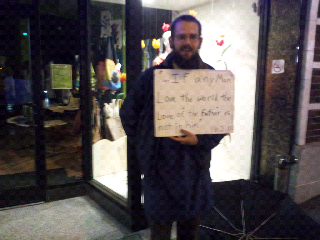 "If any Man
Love the world the
Love of the Father is
not in him"